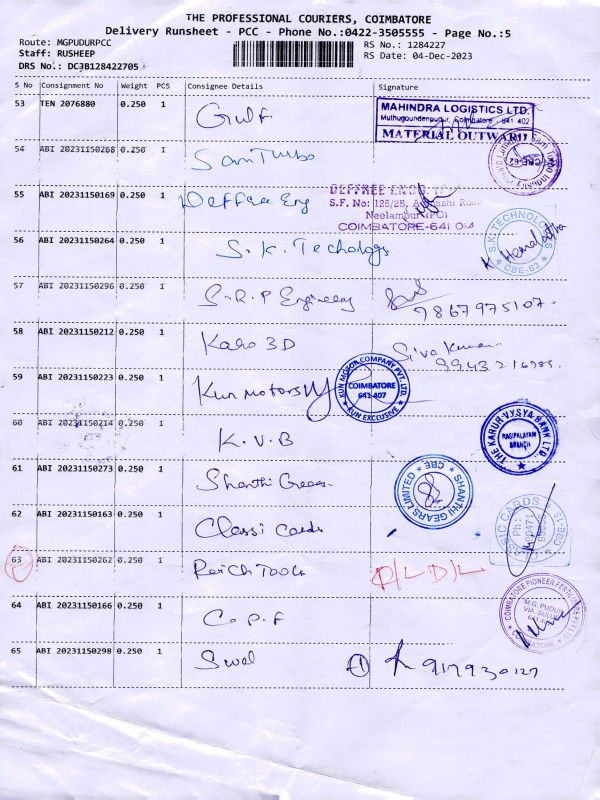 THE PROFESSIONAL COURIERS, COIMBATORE
Delivery Runsheet - PCC - Phone No.:0422-3505555 - Page No.:5
Route: MGPUDURPCC
RS No.: 1284227
Staff: RUSHEEP
RS Date: 04-Dec-2023
DRS No.: DCJB128422705
S No Consignment No Weight PCS Consignee Details Signature
53 TEN 2076880 0.250 1 Gulf
MAHINDRA LOGISTICS LTD.
Muthugoundenpudur, Coimbatore - 641 402
MATERIAL OUTWARD
54 ABI 20231150268 0.250 1 Sam Turbo
55 ABI 20231150169 0.250 1 Deffree Eng
S.F. No: 125/2B, Road
Neelambur (PO)
COIMBATORE-641
56 ABI 20231150264 0.250 1 S.K. Techology
S.K. TECHNOLOGY
CBE-62
Hemalatha
57 ABI 20231150296 0.250 1 S.R.P Engineery
9867975107
58 ABI 20231150212 0.250 1 3D
Siva Kumar
59 ABI 20231150223 0.250 1 Kun Motors
KUN MOTOR COMPANY PVT. LTD.
COIMBATORE
641-407
KUN EXCLUSIVE
60 ABI 20231150214 0.250 1 K.V.B
THE KARUR VYSYA BANK LTD.
RASIPALAYAM
BRANCH
61 ABI 20231150273 0.250 1 Shanthi Gears
SHANTHI GEARS LIMITED
CBE
62 ABI 20231150163 0.250 1 Classi Cards
63 ABI 20231150262 0.250 1 Tools D/L D/L
64 ABI 20231150166 0.250 1 C.P.F
COIMBATORE PIONEER
M.G. PUDUR
COIMBATORE
65 ABI 20231150298 0.250 1